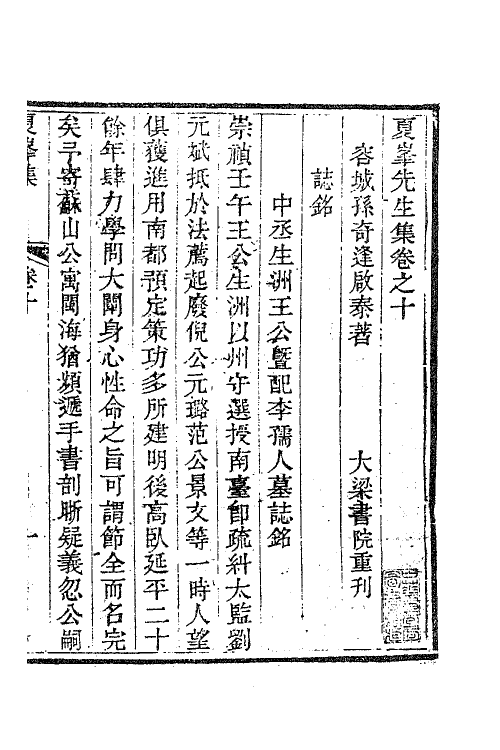 夏峯先生集卷之十
容城孫奇逢啟泰著　大梁書院重刊
誌銘
中丞生洲王公暨配李孺人墓誌銘
崇禎壬午王公生洲以州守選授南臺卽疏糾太監劉
元斌抵於法薦起廢倪公元璐范公景文等一時人望
俱獲進用南都預定策功多所建明後高臥延平二十
餘年肆力學問大闡身心性命之旨可謂節全而名完
矣予寄蘇山公寓閩海猶頻遞手書剖晰疑義忽公嗣
夏峯集　卷十　一